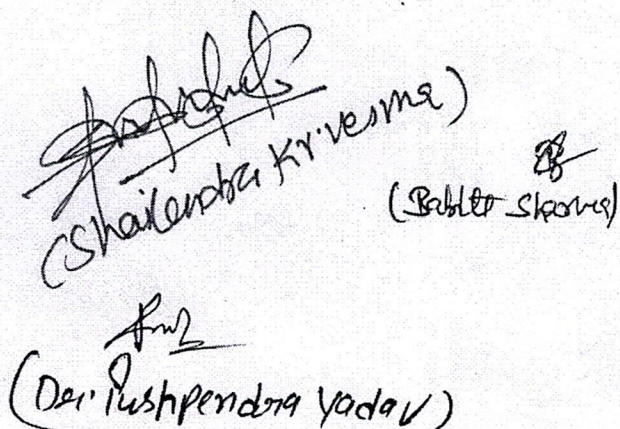 (Shailendra Kr. Verma)
(Bablu Sharma)
(Dr. Pushpendra Yadav)